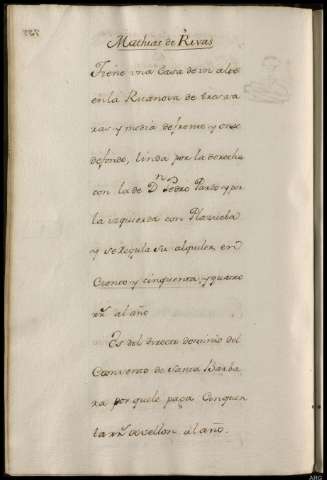 Mathias de Rivas
Tiene una Casa de un alto
en la Ruanova de tres va
ras y media de frente y once
de fondo, linda por la derecha
con la de Dn Pedro Pardo y por
la izquierda con
y se regula su alquiler en
Ciento y cinquenta, y quatro
rrs. al año
Es del directo dominio del
Convento de Santa Barba
ra por quele paga Cinquen
ta rrs. de vellon al año.
ARG